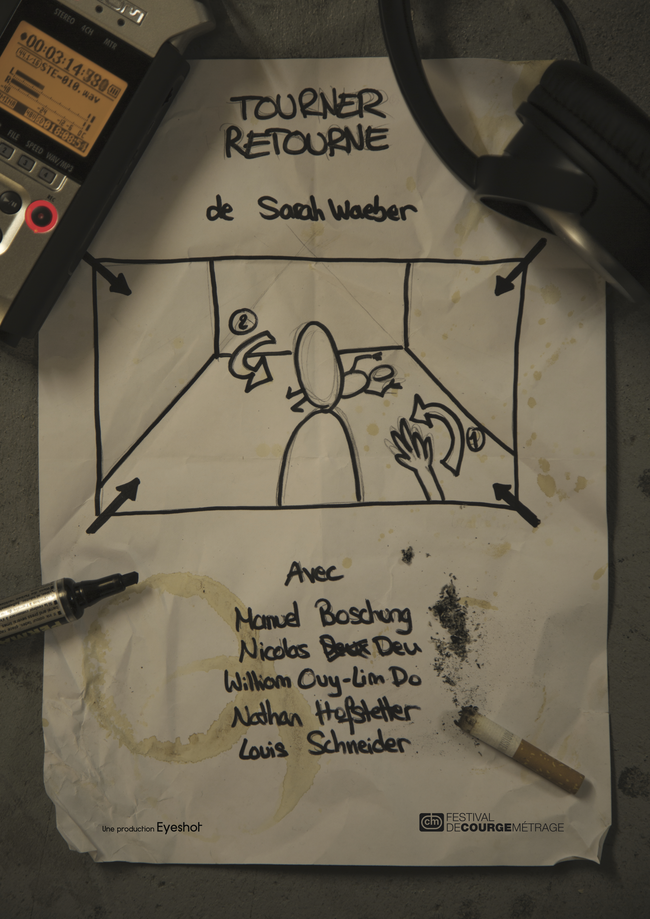 STEREO 4CH MTR
00:03:14:930
STE-010.wav
FILE SPEED WAV/MP3
TOURNER
RETOURNE
de Sarah Waeber
2
1
Avec
Manuel Boschung
Nicolas Deu
William Ouy-Lim Do
Nathan Hofstetter
Louis Schneider
Une production Eyeshot
cm FESTIVAL
DECOURGEMÉTRAGE